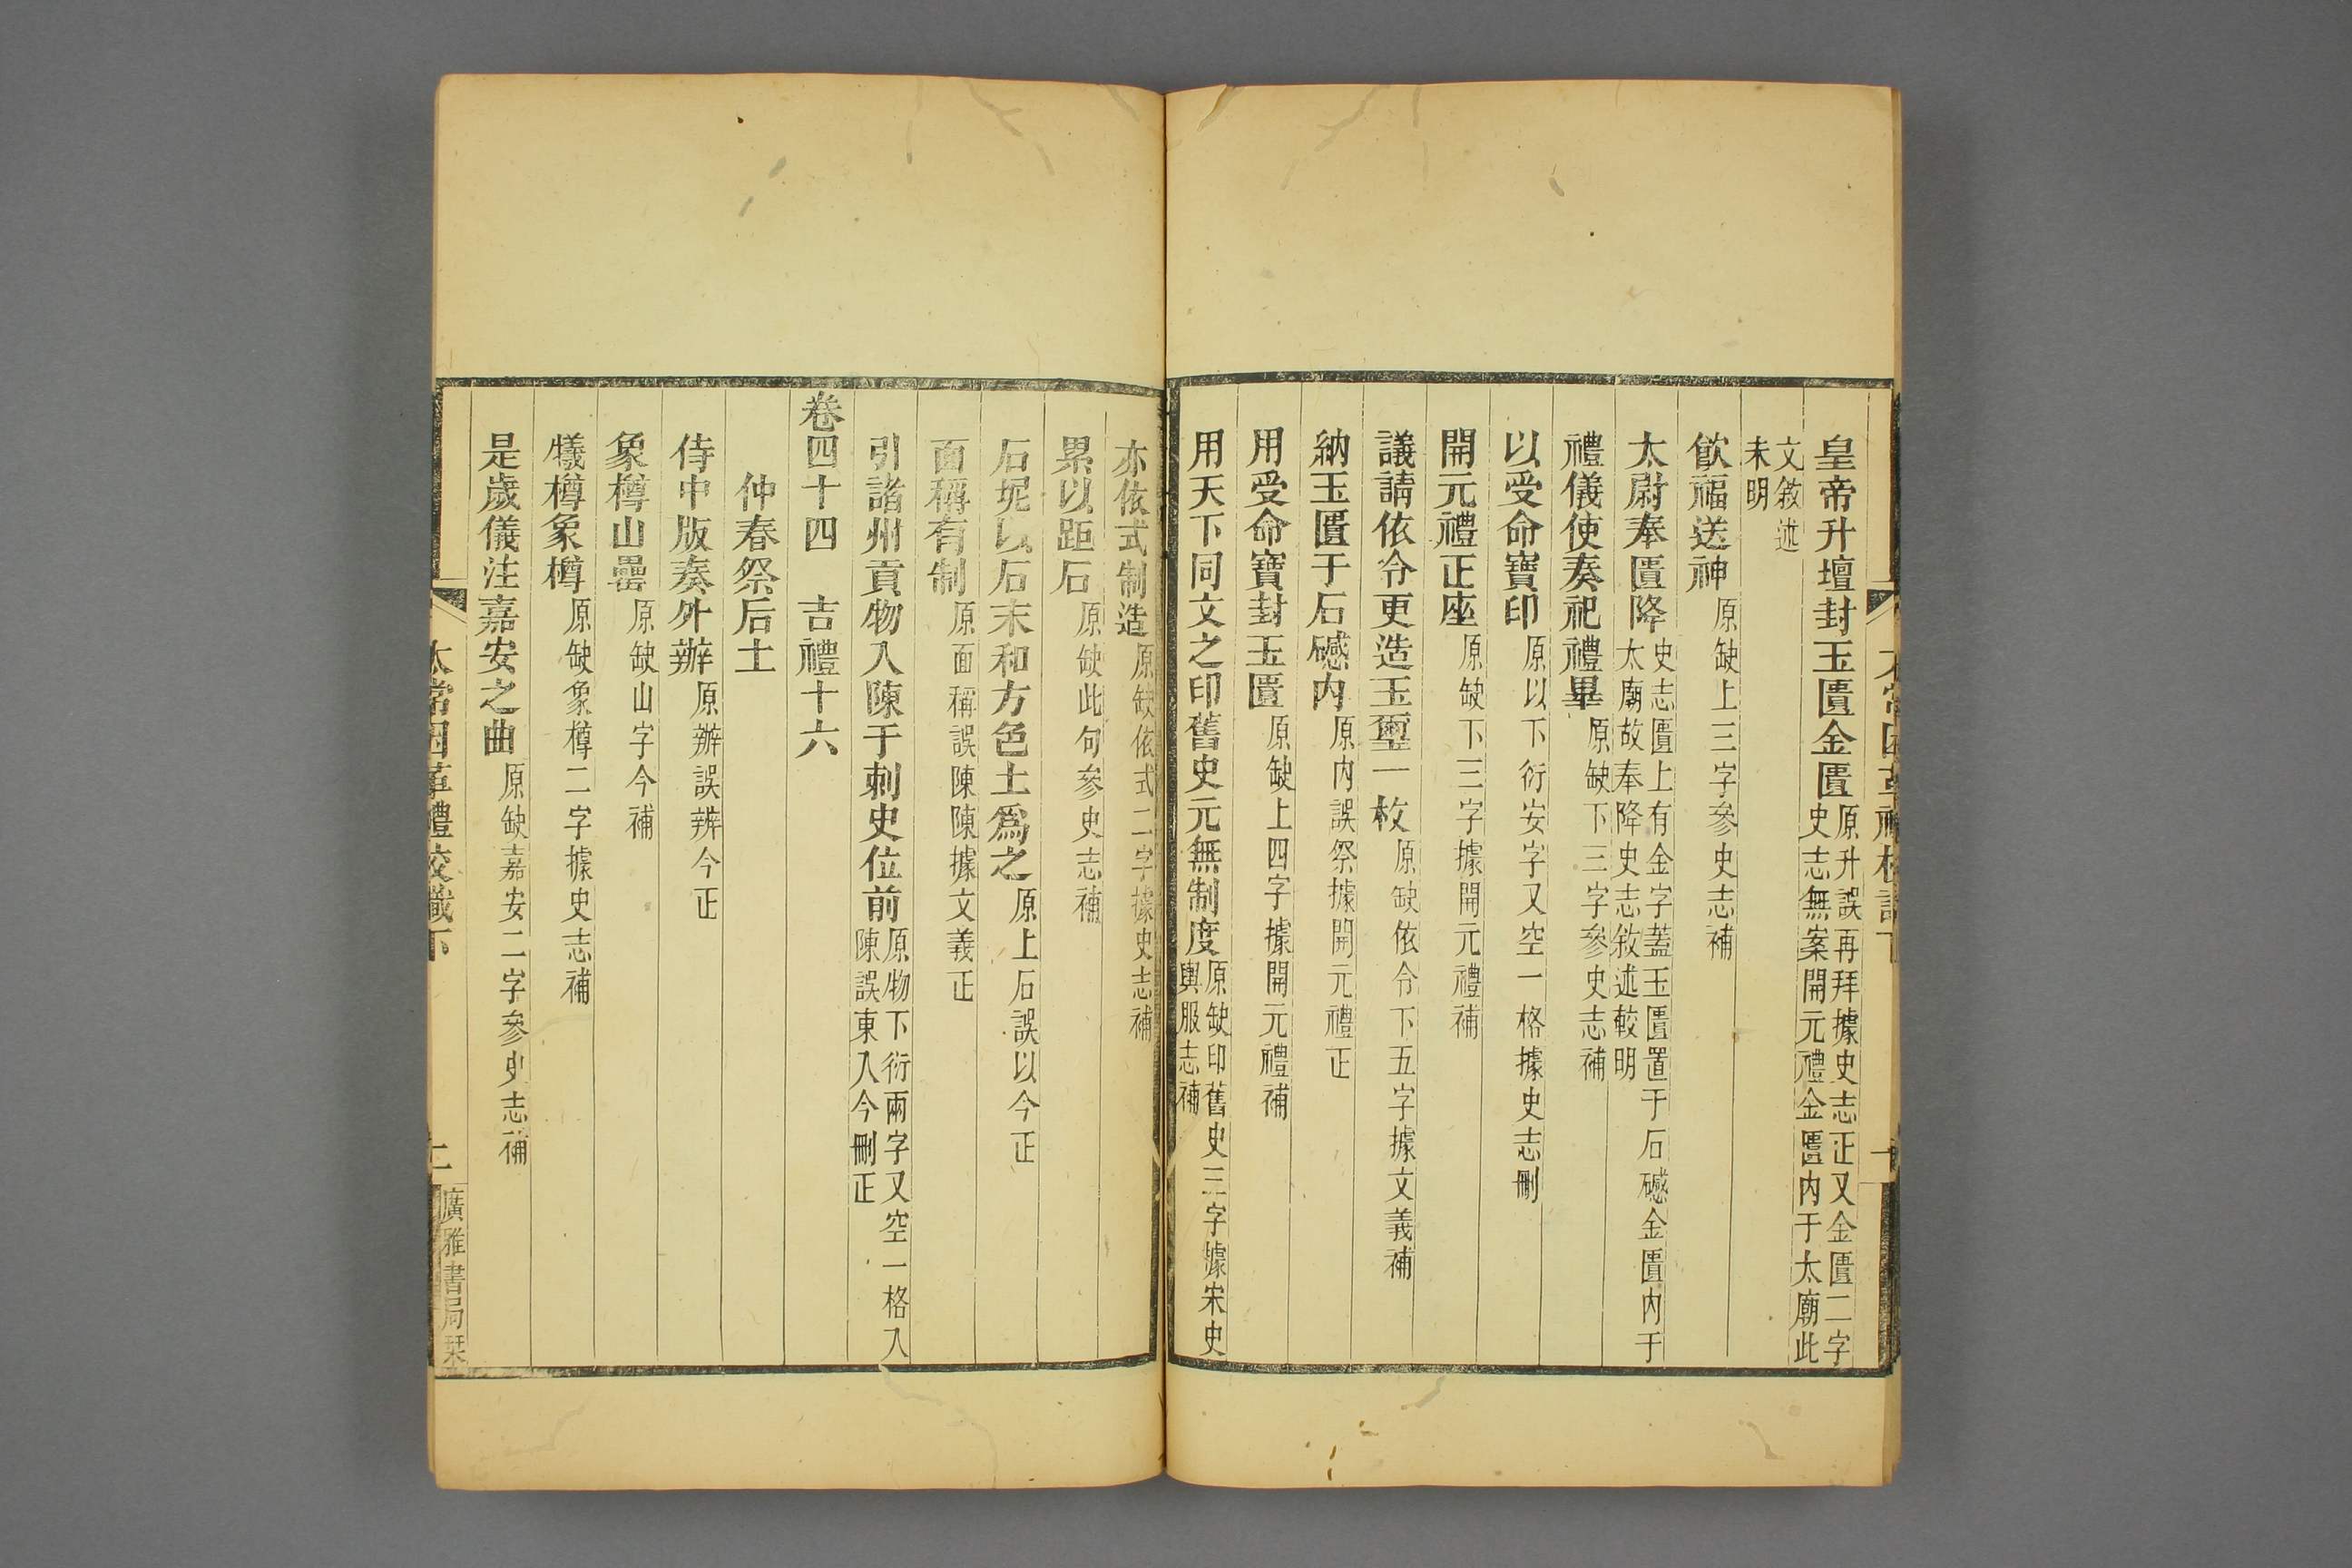 皇帝升壇封玉匱金匱原升誤再拜據史志正又金匱二字史志無案開元禮金匱內于太廟此
文敘述未明
飮福送神原缺上三字參史志補
太尉奉匱降史志匱上有金字蓋玉匱置于石礈金匱內于太廟故奉降史志敘述較明
禮儀使奏祀禮畢原缺下三字參史志補
以受命寶印原以下衍安字又空一格據史志刪
開元禮正座原缺下三字據開元禮補
議請依令更造玉璽一枚原缺依令下五字據文義補
納玉匱于石礈內原內誤祭據開元禮正
用受命寶封玉匱原缺上四字據開元禮補
用天下同文之印舊史元無制度原缺印舊史三字據宋史輿服志補
亦依式制造原缺依式二字據史志補
累以距石原缺此句參史志補
石坭以石末和方色土爲之原上石誤以今正
面稱有制原面稱誤陳陳據文義正
引諸州貢物入陳于刺史位前原物下衍兩字又空一格入陳誤東入今刪正
卷四十四 吉禮十六
仲春祭后土
侍中版奏外辦原辦誤辨今正
象樽山罍原缺山字今補
犧樽象樽原缺象樽二字據史志補
是歲儀注嘉安之曲原缺嘉安二字參史志補
太常因革禮校識下
十一
廣雅書局栞